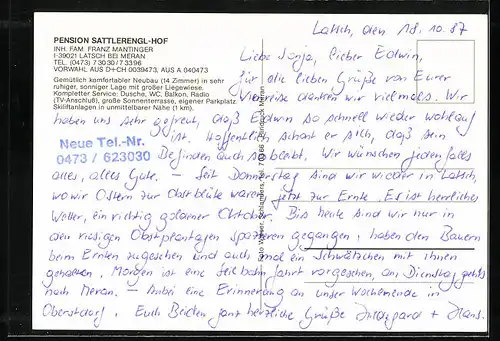 PENSION SATTLERENGL-HOF
INH. FAM. FRANZ MANTINGER
I-39021 LATSCH BEI MERAN
TEL. (0473) 73030 / 73396
VORWAHL AUS D+CH 0039473, AUS A 040473
Gemütlich komfortabler Neubau (14 Zimmer) in sehr
ruhiger, sonniger Lage mit großer Liegewiese.
Kompletter Service: Dusche, WC, Balkon, Radio
(TV-Anschluß), große Sonnenterrasse, eigener Parkplatz.
Skiliftanlagen in unmittelbarer Nähe (1 km).
Neue Tel.-Nr.
0473 / 623030
Latsch, den 18.10.87
Liebe Sonja, lieber Edwin,
für die lieben Grüße von Eurer
Skireise danken wir vielmals. Wir
haben uns sehr gefreut, daß Edwin so schnell wieder wohlauf
ist. Hoffentlich schont er sich, daß sein
Befinden auch so bleibt. Wir wünschen jedenfalls
alles, alles Gute. – Seit Donnerstag sind wir wieder in Latsch,
wo wir Ostern zur Obstblüte waren – jetzt zur Ernte. Es ist herrliches
Wetter, ein richtig goldener Oktober. Bis heute sind wir nur in
den riesigen Obstplantagen spazieren gegangen, haben den Bauern
beim Ernten zugesehen und auch mal ein Schwätzchen mit ihnen
gehalten. Morgen ist eine Seilbahnfahrt vorgesehen, am Dienstag gehts
nach Meran. – Anbei eine Erinnerung an unser Wochenende in
Oberstdorf. Euch Beiden ganz herzliche Grüße Hildegard + Hans.